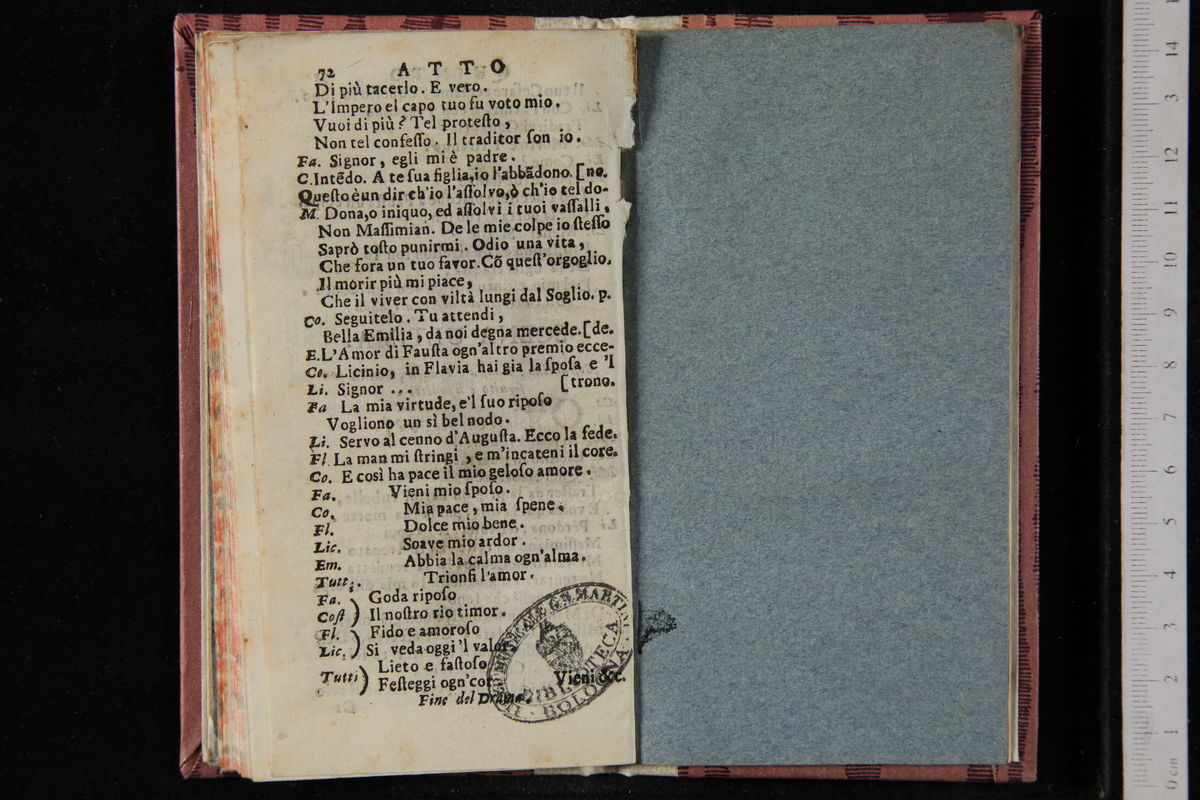 72 ATTO
Di più tacerlo. E vero.
L'Impero el capo tuo fu voto mio.
Vuoi di più? Tel proteſto,
Non tel confeſſo. Il traditor ſon io.
Fa. Signor, egli mi è padre.
C.Intẽdo. A te ſua figlia,io l'abbãdono. [no.
Queſto è un dir ch'io l'aſſolvo,ò ch'io tel do-
M. Dona,o iniquo, ed aſſolvi i tuoi vaſſalli,
Non Maſſimian. De le mie colpe io ſteſſo
Saprò toſto punirmi. Odio una vita,
Che fora un tuo favor.Cõ queſt'orgoglio.
Il morir più mi piace,
Che il viver con viltà lungi dal Soglio. p.
Co. Seguitelo. Tu attendi,
Bella Emilia, da noi degna mercede.[de.
E.L'Amor di Fauſta ogn'altro premio ecce-
Co. Licinio, in Flavia hai gia la ſpoſa e 'l
Li. Signor ... [trono.
Fa La mia virtude, e'l ſuo ripoſo
Vogliono un sì bel nodo.
Li. Servo al cenno d'Auguſta. Ecco la fede.
Fl. La man mi ſtringi, e m'incateni il core.
Co. E così ha pace il mio geloſo amore.
Fa. Vieni mio ſpoſo.
Co. Mia pace, mia ſpene.
Fl. Dolce mio bene.
Lic. Soave mio ardor.
Em. Abbia la calma ogn'alma.
Tutti. Trionfi l'amor.
Fa. ) Goda ripoſo
Coſt ) Il noſtro rio timor.
Fl. ) Fido e amoroſo
Lic. ) Si veda oggi 'l valor
Tutti ) Lieto e faſtoſo
Feſteggi ogn'cor Vieni &c.
Fine del Drama.
MUSICALE G.B. MARTINI
BIBLIOTECA
BOLOGNA
0 cm 1 2 3 4 5 6 7 8 9 10 11 12 13 14